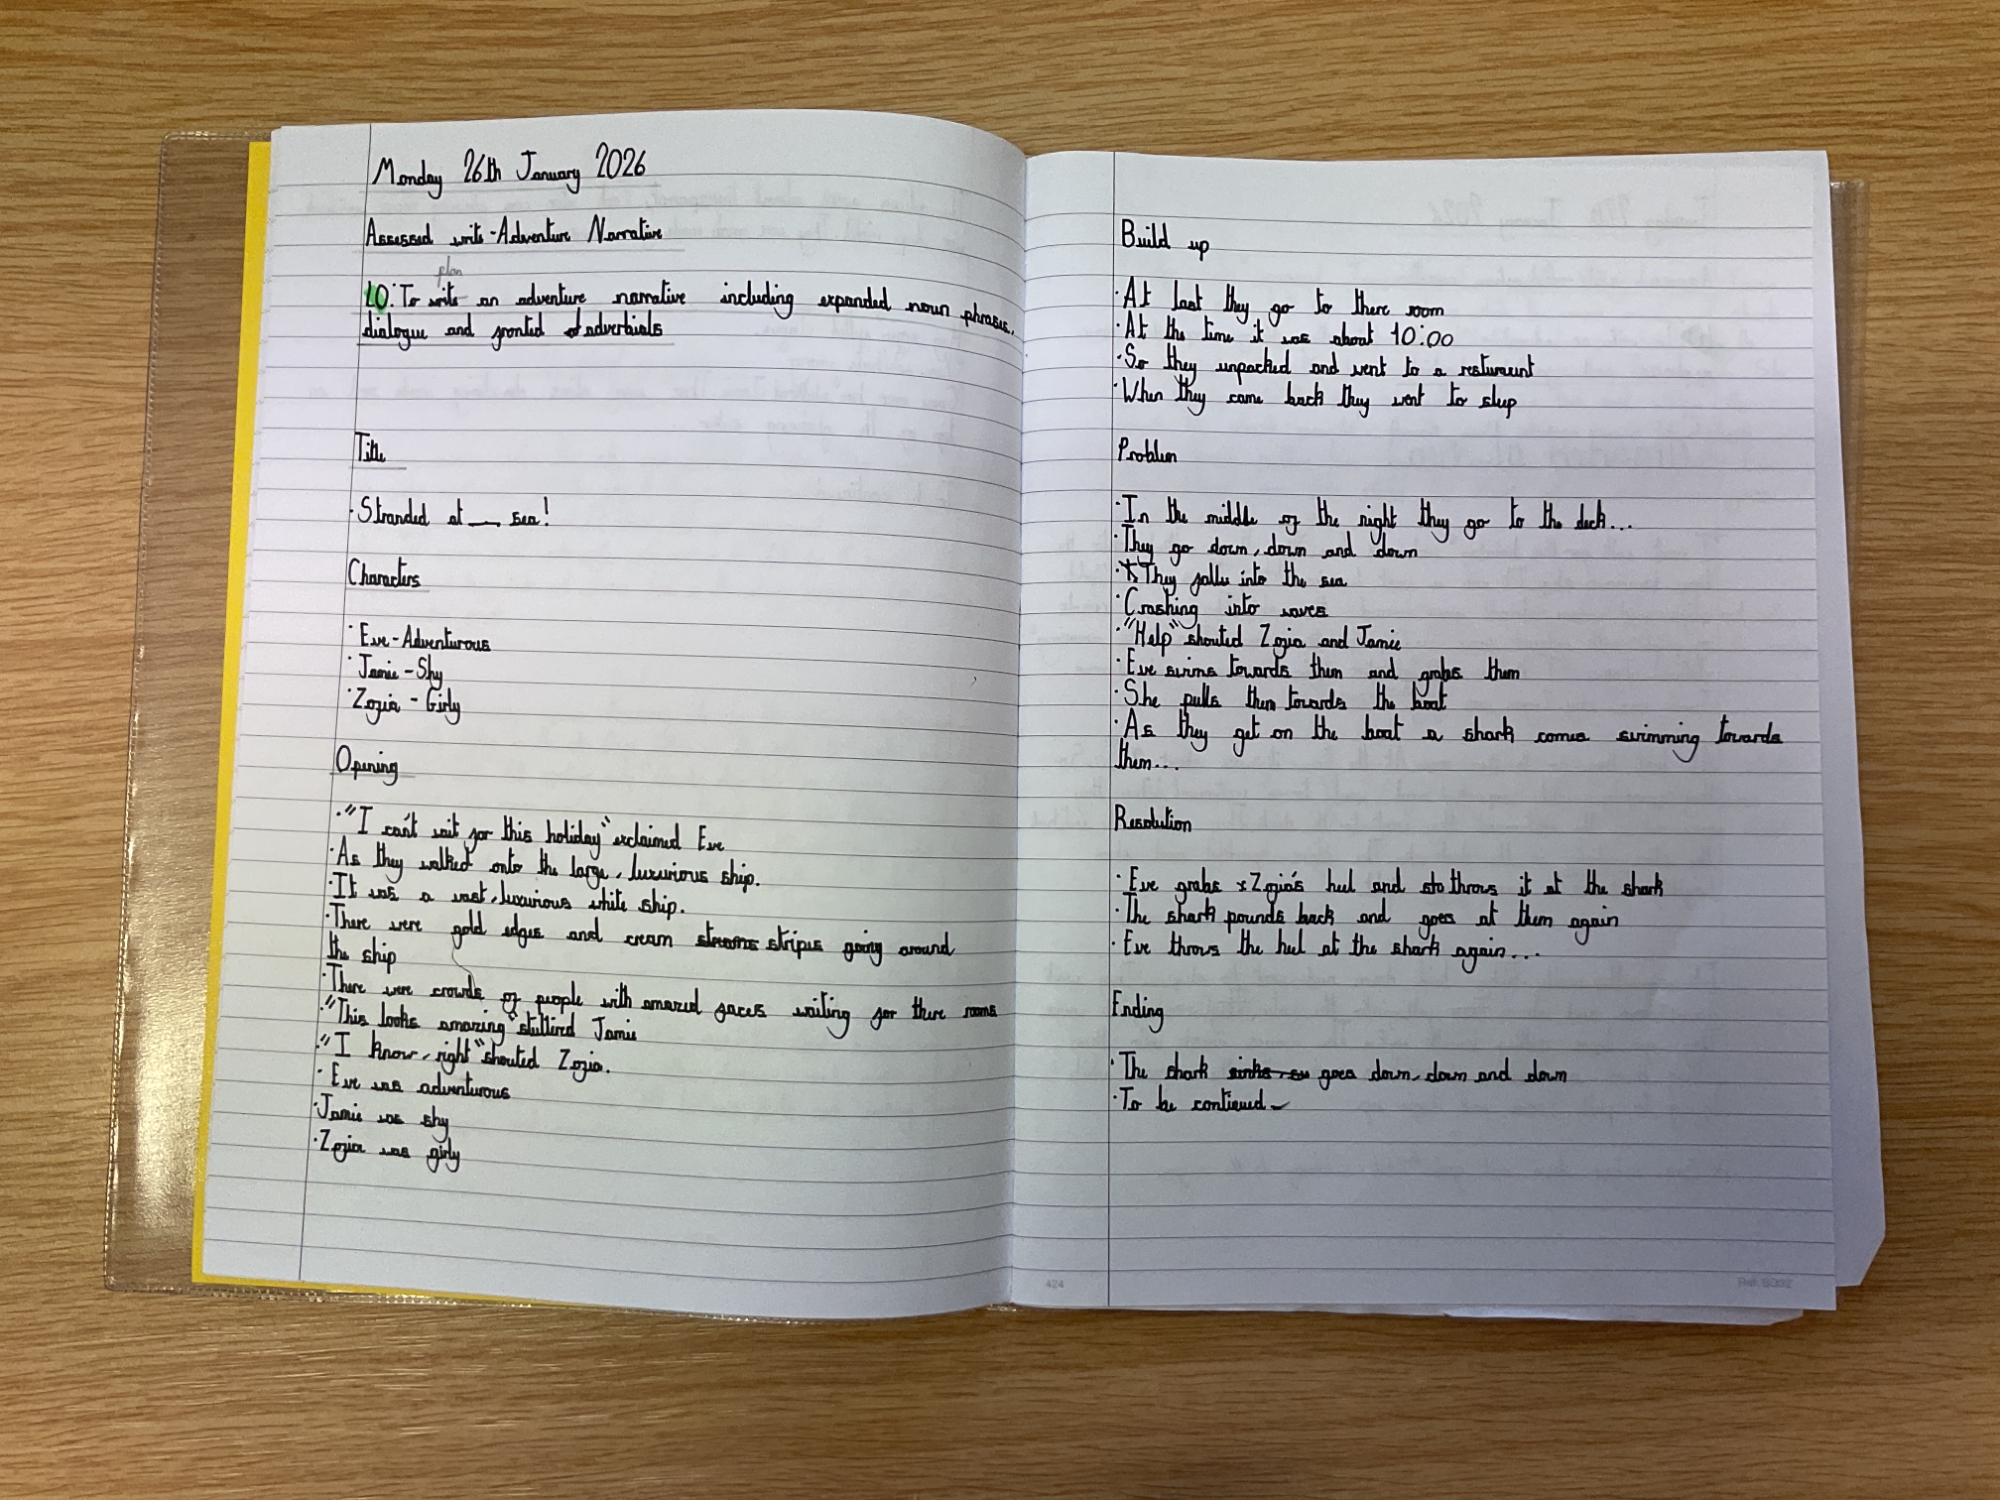 Monday 26th January 2026
Assessed write - Adventure Narrative
plan
LO: To write an adventure narrative including expanded noun phrases,
dialogue and fronted adverbials
Title
· Stranded at __ sea!
Characters
· Eve - Adventurous
· Jamie - Shy
· Zofia - Girly
Opening
· "I can't wait for this holiday" exclaimed Eve
· As they walked onto the large, luxurious ship.
· It was a vast, luxurious white ship.
· There were gold edges and cream streams stripes going around
the ship
· There were crowds of people with amazed faces waiting for there rooms
· "This looks amazing" stuttired Jamie
· "I know, right" shouted Zofia.
· Eve was adventurous
· Jamie was shy
· Zofia was girly
Build up
· At last they go to there room
· At the time it was about 10:00
· So they unpacked and went to a resturaunt
· When they came back they went to sleep
Problem
· In the middle of the night they go to the deck...
· They go down, down and down
· They falle into the sea
· Crashing into waves
· "Help" shouted Zofia and Jamie
· Eve swims towards them and grabs them
· She pulls them towards the boat
· As they get on the boat a shark comes swimming towards
them...
Resolution
· Eve grabs Zofia's heel and throws it at the shark
· The shark pounds back and goes at them again
· Eve throws the heel at the shark again...
Ending
· The shark sinks goes down, down and down
· To be contiened
424